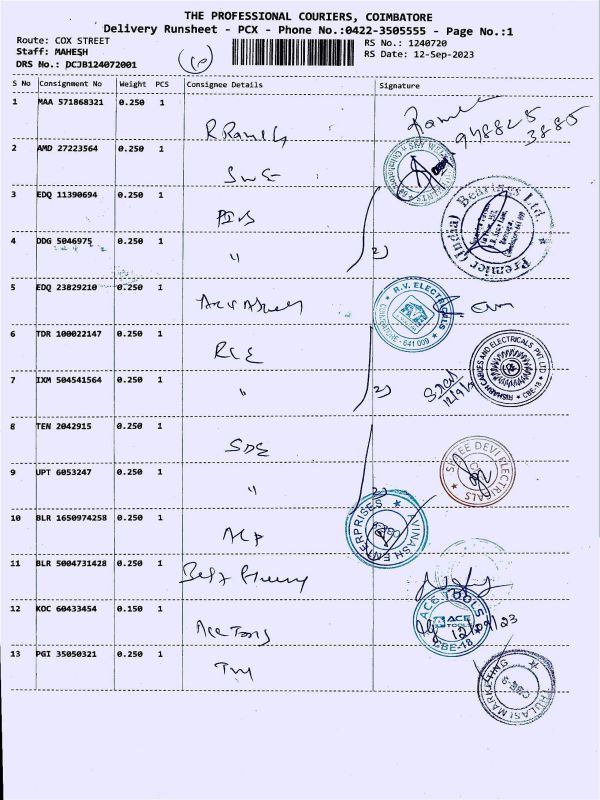 THE PROFESSIONAL COURIERS, COIMBATORE
Delivery Runsheet - PCX - Phone No.:0422-3505555 - Page No.:1
Route: COX STREET RS No.: 1240720
Staff: MAHESH RS Date: 12-Sep-2023
DRS No.: DCJB124072001
S No Consignment No Weight PCS Consignee Details Signature
1 MAA 571868321 0.250 1
2 AMD 27223564 0.250 1
3 EDQ 11390694 0.250 1
Premier (India) Bearings Ltd.
4 DDG 5046975 0.250 1 " 2)
5 EDQ 23829210 0.250 1
R.V. ELECTRICALS
COIMBATORE - 641 009
6 TDR 100022147 0.250 1 RCE
RISHABH CABLES AND ELECTRICALS PVT LTD
CBE-18
7 IXM 504541564 0.250 1 2)
8 TEN 2042915 0.250 1 SDE
SHREE DEVI ELECTRICALS
9 UPT 6053247 0.250 1 " 2)
10 BLR 1650974258 0.250 1
AVINASH ENTERPRISES
11 BLR 5004731428 0.250 1
12 KOC 60433454 0.150 1 Ace Tools
ACE TOOLS
ACE TOOLS
CBE-18
12/09/23
13 PGI 35050321 0.250 1
THULASI MARKETING
CBE-9